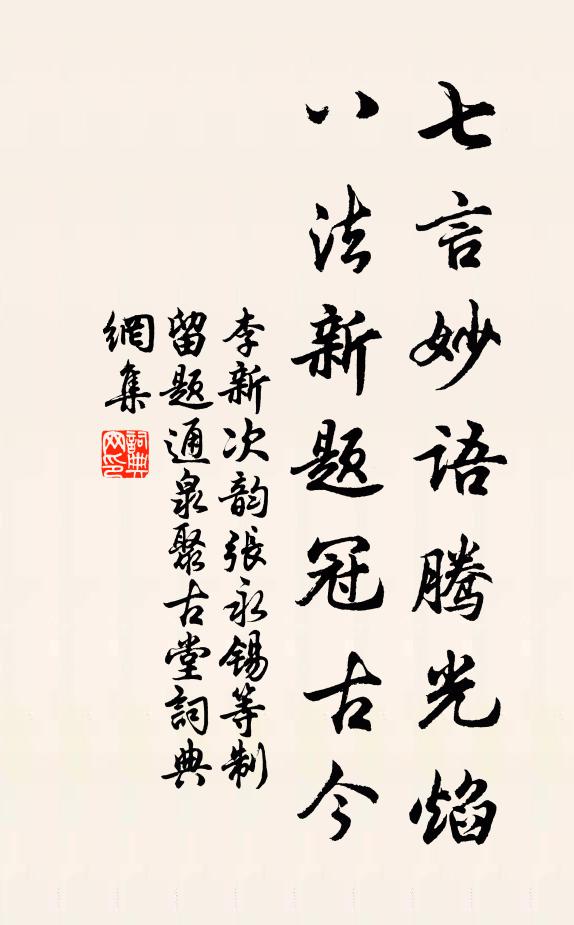 七言妙語腾光焰
八法新題冠古今
李新次韵張永锡等制
留题通泉聚古堂詞典
網集
詞典网印